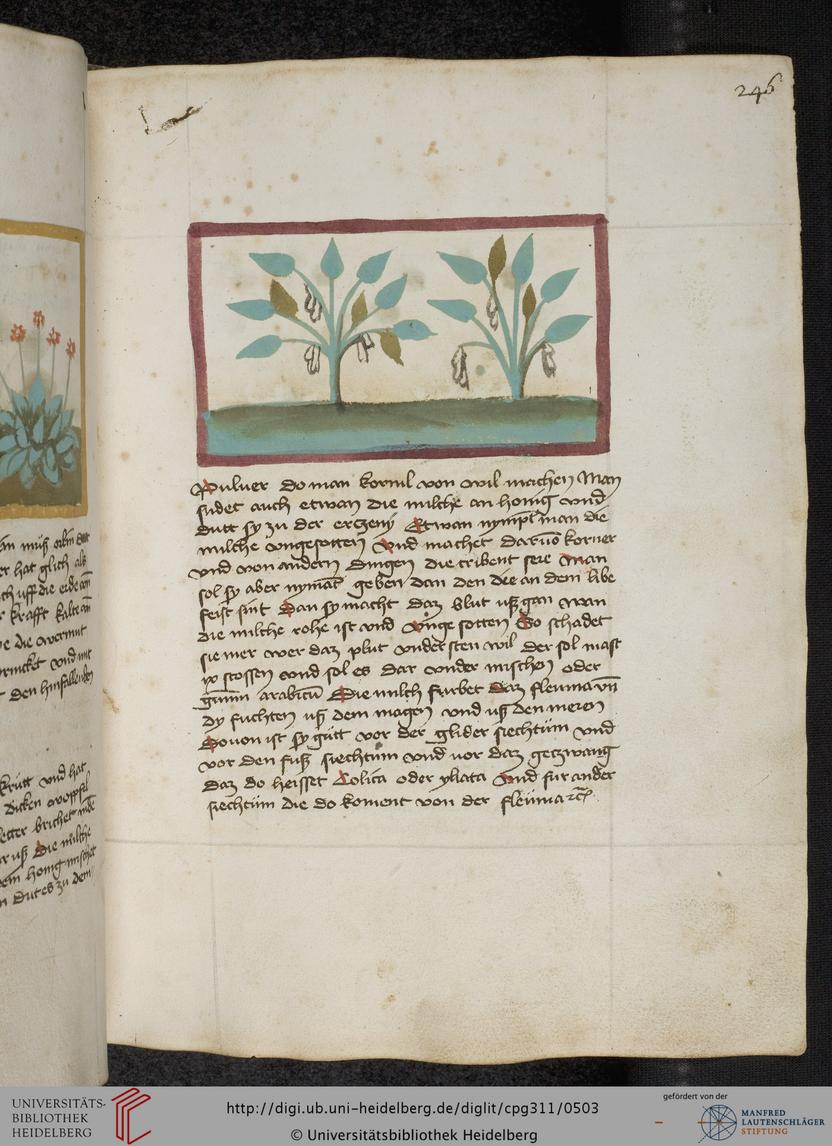 246
Puluer do man kornl von wil machen Man
findet auch etwan die milche an honig vnd
dutt sy zu der erczeny Etwan nympt man die
milche vngesotten Vnd machet daruō korner
vnd von andern dingen die tribent sere Man
sol sy aber nymāt geben dan den die an dem libe
feist sint Dan sy macht daz blut vß gan wan
die milche rohe ist vnd vnge sotten So schadet
sie mer wer daz plut vnder sten wil der sol mast
ix stossen vnd sol es dar vnder mischen oder
gūmi arabicū Die milch furbet daz fleuma vn̄
dy fuchten vß dem magen vnd vß den nieren
Douon ist sy gůtt vor der glider siechtům vnd
vor den fuß siechtum vnd vor daz geczwang
daz do heisset Colica oder yliata Vnd fur ander
siechtům die do koment von der fleůma
an muß
er hat glich als
ch vff die erde
krafft kalte
e die wermut
vnd mit
den hinfallenden
krutt vnd hat
dicken
letter brichet
vß Die milche
honig mischet
dut es zu dem
UNIVERSITÄTS-
BIBLIOTHEK
HEIDELBERG
http://digi.ub.uni-heidelberg.de/diglit/cpg311/0503
© Universitätsbibliothek Heidelberg
gefördert von der
MANFRED
LAUTENSCHLÄGER
STIFTUNG